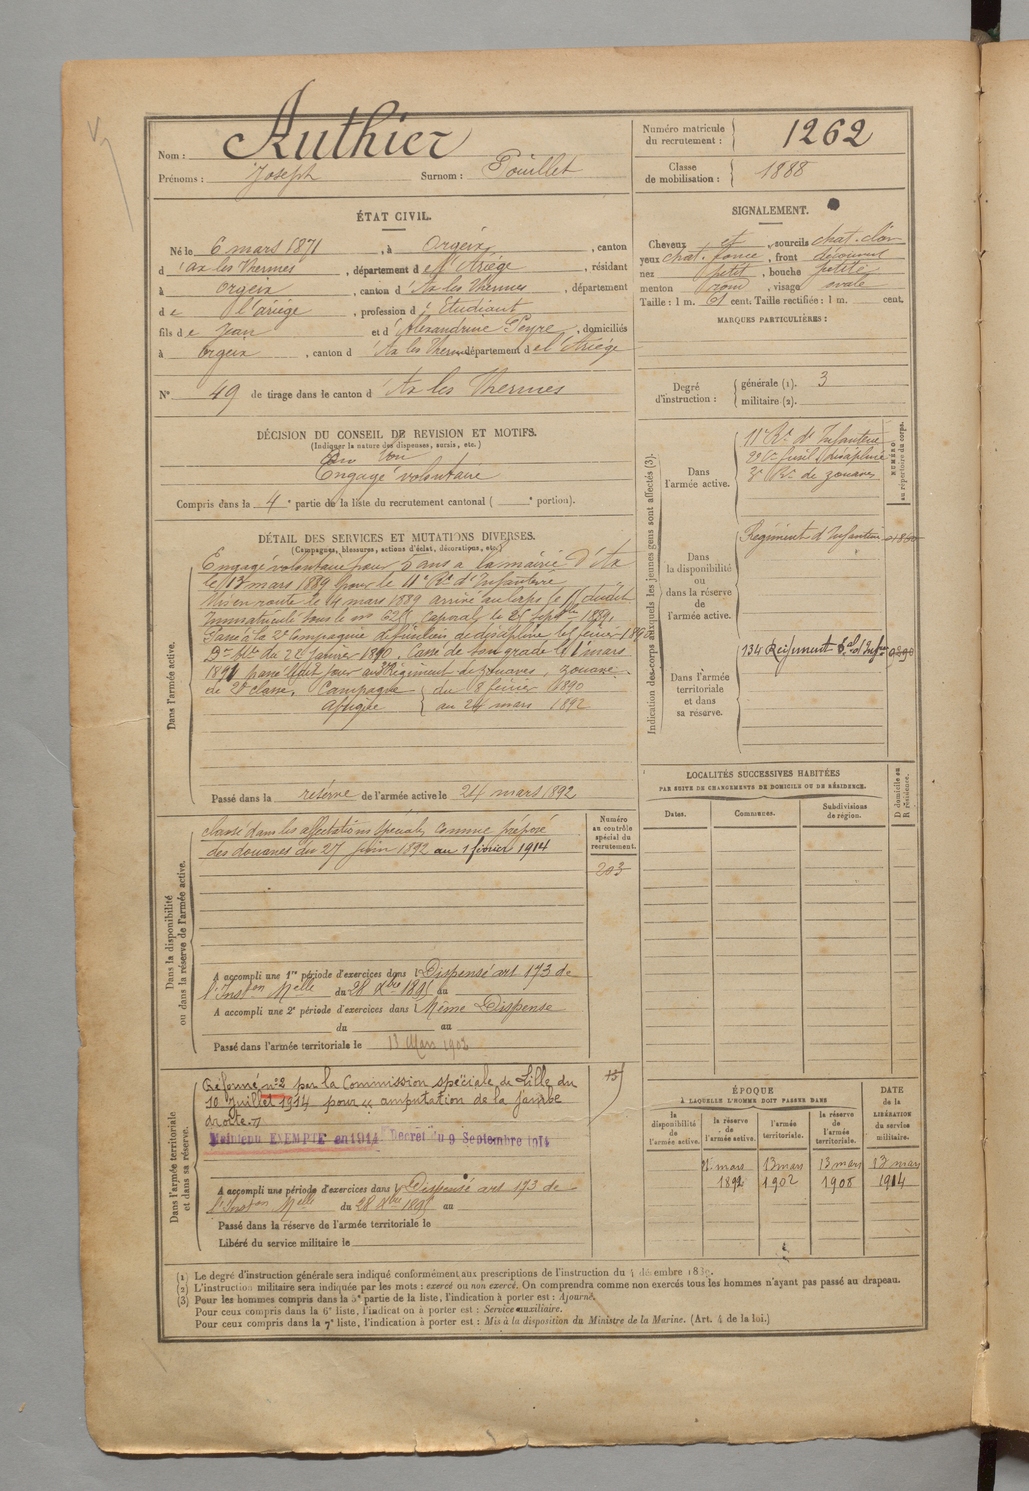 Nom : Authier
Prénoms : Joseph Surnom : Pouillet
Numéro matricule du recrutement : 1262
Classe de mobilisation : 1888
ÉTAT CIVIL.
Né le 6 mars 1871, à Orgeix, canton
d'ax les Thermes, département de l'Ariége, résidant
à Orgeix, canton d'Ax les Thermes, département
de l'ariége, profession d'Etudiant
fils de Jean et d'Alexandrine Peyre, domiciliés
à Orgeix, canton d'Ax les Thermes département de l'Ariége
N° 49 de tirage dans le canton d'Ax les Thermes
SIGNALEMENT.
Cheveux et sourcils chat. clair
yeux chat. foncé, front découvert
nez petit, bouche petite
menton rond, visage ovale
Taille : 1 m. 61 cent. Taille rectifiée : 1 m. cent.
MARQUES PARTICULIÈRES :
Degré d'instruction : générale (1). 3
militaire (2).
DÉCISION DU CONSEIL DE REVISION ET MOTIFS.
(Indiquer la nature des dispenses, sursis, etc.)
Bon
Engagé volontaire
Compris dans la 4e partie de la liste du recrutement cantonal ( e portion).
DÉTAIL DES SERVICES ET MUTATIONS DIVERSES.
(Campagnes, blessures, actions d'éclat, décorations, etc.)
Dans l'armée active.
Engagé volontaire pour 5 ans à la mairie d'Ax
le 13 mars 1889 pour le 11e Rt d'Infanterie
Mis en route le 14 mars 1889 arrivé au corps le dudit
Immatriculé sous le no Caporal le 25 Septbre 1889.
Passé à la 2e Compagnie de fusiliers de discipline le février 1890
Don Mlle du 22 Janvier 1890. Cassé de son grade le 1 mars
1891 passé ledit jour au 3e Régiment de zouaves, zouave
de 2e classe. Campagne du 8 février 1890
Afrique au 24 mars 1892
Passé dans la réserve de l'armée active le 24 mars 1892
Indication des corps auxquels les jeunes gens sont affectés (3).
NUMÉRO au répertoire du corps.
Dans l'armée active.
11e Rt d'Infanterie
2e Cie fusil. discipline
3e Rt de zouaves
Dans la disponibilité ou dans la réserve de l'armée active.
Régiment d'Infanterie
Dans l'armée territoriale et dans sa réserve.
134 Régiment tal d'Infie
LOCALITÉS SUCCESSIVES HABITÉES
PAR SUITE DE CHANGEMENTS DE DOMICILE OU DE RÉSIDENCE.
Dates. Communes. Subdivisions de région. D domicile ou R résidence.
Dans la disponibilité ou dans la réserve de l'armée active.
Numéro au contrôle spécial du recrutement.
203
classé dans les affectations spéciales comme préposé
des douanes du 27 juin 1892 au 1 février 1914
A accompli une 1re période d'exercices dans Dispensé art 173 de
l'Inston Melle du 28 Xbre 1895 au
A accompli une 2e période d'exercices dans Même Dispense
du au
Passé dans l'armée territoriale le 13 Mars 1902
Dans l'armée territoriale et dans sa réserve.
Réformé no 2 par la Commission spéciale de Lille du
10 juillet 1914 pour "amputation de la jambe
droite."
Maintenu EXEMPTÉ en 1914 Décret du 9 Septembre 1914
A accompli une période d'exercices dans Dispensé art 173 de
l'Inston Melle du 28 Xbre 1895 au
Passé dans la réserve de l'armée territoriale le
Libéré du service militaire le
ÉPOQUE
À LAQUELLE L'HOMME DOIT PASSER DANS
la disponibilité de l'armée active. la réserve de l'armée active. l'armée territoriale. la réserve de l'armée territoriale.
DATE de la LIBÉRATION du service militaire.
mars 13 mars 13 mars 13 mars
1892 1902 1908 1914
(1) Le degré d'instruction générale sera indiqué conformément aux prescriptions de l'instruction du 4 décembre 1889.
(2) L'instruction militaire sera indiquée par les mots : exercé ou non exercé. On comprendra comme non exercés tous les hommes n'ayant pas passé au drapeau.
(3) Pour les hommes compris dans la 5e partie de la liste, l'indication à porter est : Ajourné.
Pour ceux compris dans la 6e liste, l'indication à porter est : Service auxiliaire.
Pour ceux compris dans la 7e liste, l'indication à porter est : Mis à la disposition du Ministre de la Marine. (Art. 4 de la loi.)